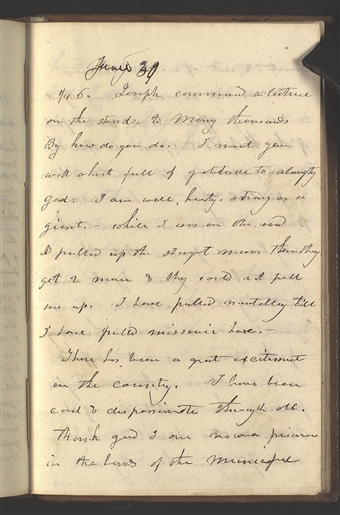 June 29
1/4 6. Joseph commenced a lecture
on the stand. to many thousands
By how do you do. I meet you
with a heart full of gratitude to almighty
god. I am well, hearty, strong as a
giant. - while I was on the road
I pulled up the strongest man. then they
got 2 more & they could not pull
me up. I have pulled mentally till
I have pulled missouri here. -
There has been a great excitement
in the country. I have been
cool & dispassionate through all.
Thank god I am now a prisoner
in the hands of the Municipal